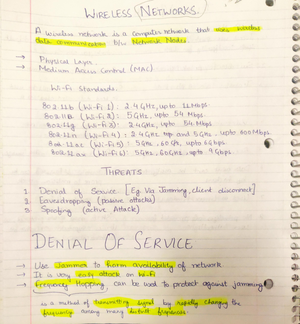 WIRELESS NETWORKS.
A wireless network is a computer network that uses wireless
data communication b/w Network Nodes.
→ Physical Layer
→ Medium Access Control (MAC)
Wi-Fi Standards.
802.11b (Wi-Fi 1): 2.4GHz, upto 11Mbps
802.11a (Wi-Fi 2): 5GHz, upto 54 Mbps
802.11g (Wi-Fi 3): 2.4GHz, upto 54 Mbps
802.11n (Wi-Fi 4): 2.4 GHz and 5GHz, upto 600Mbps
802.11ac (Wi-Fi 5): 5GHz, upto
802.11ax (Wi-Fi 6): 5GHz, 60GHz, upto 9Gbps
THREATS
1. Denial of Service [Eg. Via Jamming, client disconnect]
2. Eavesdropping (passive attacks)
3. Spoofing (active Attack)
DENIAL OF SERVICE
→ Use Jammer to harm availability of network
→ It is very easy attack on Wi-Fi
→ Frequency Hopping, can be used to protect against jamming
is a method of transmitting signal by rapidly changing the
frequency among many distinct frequencies.